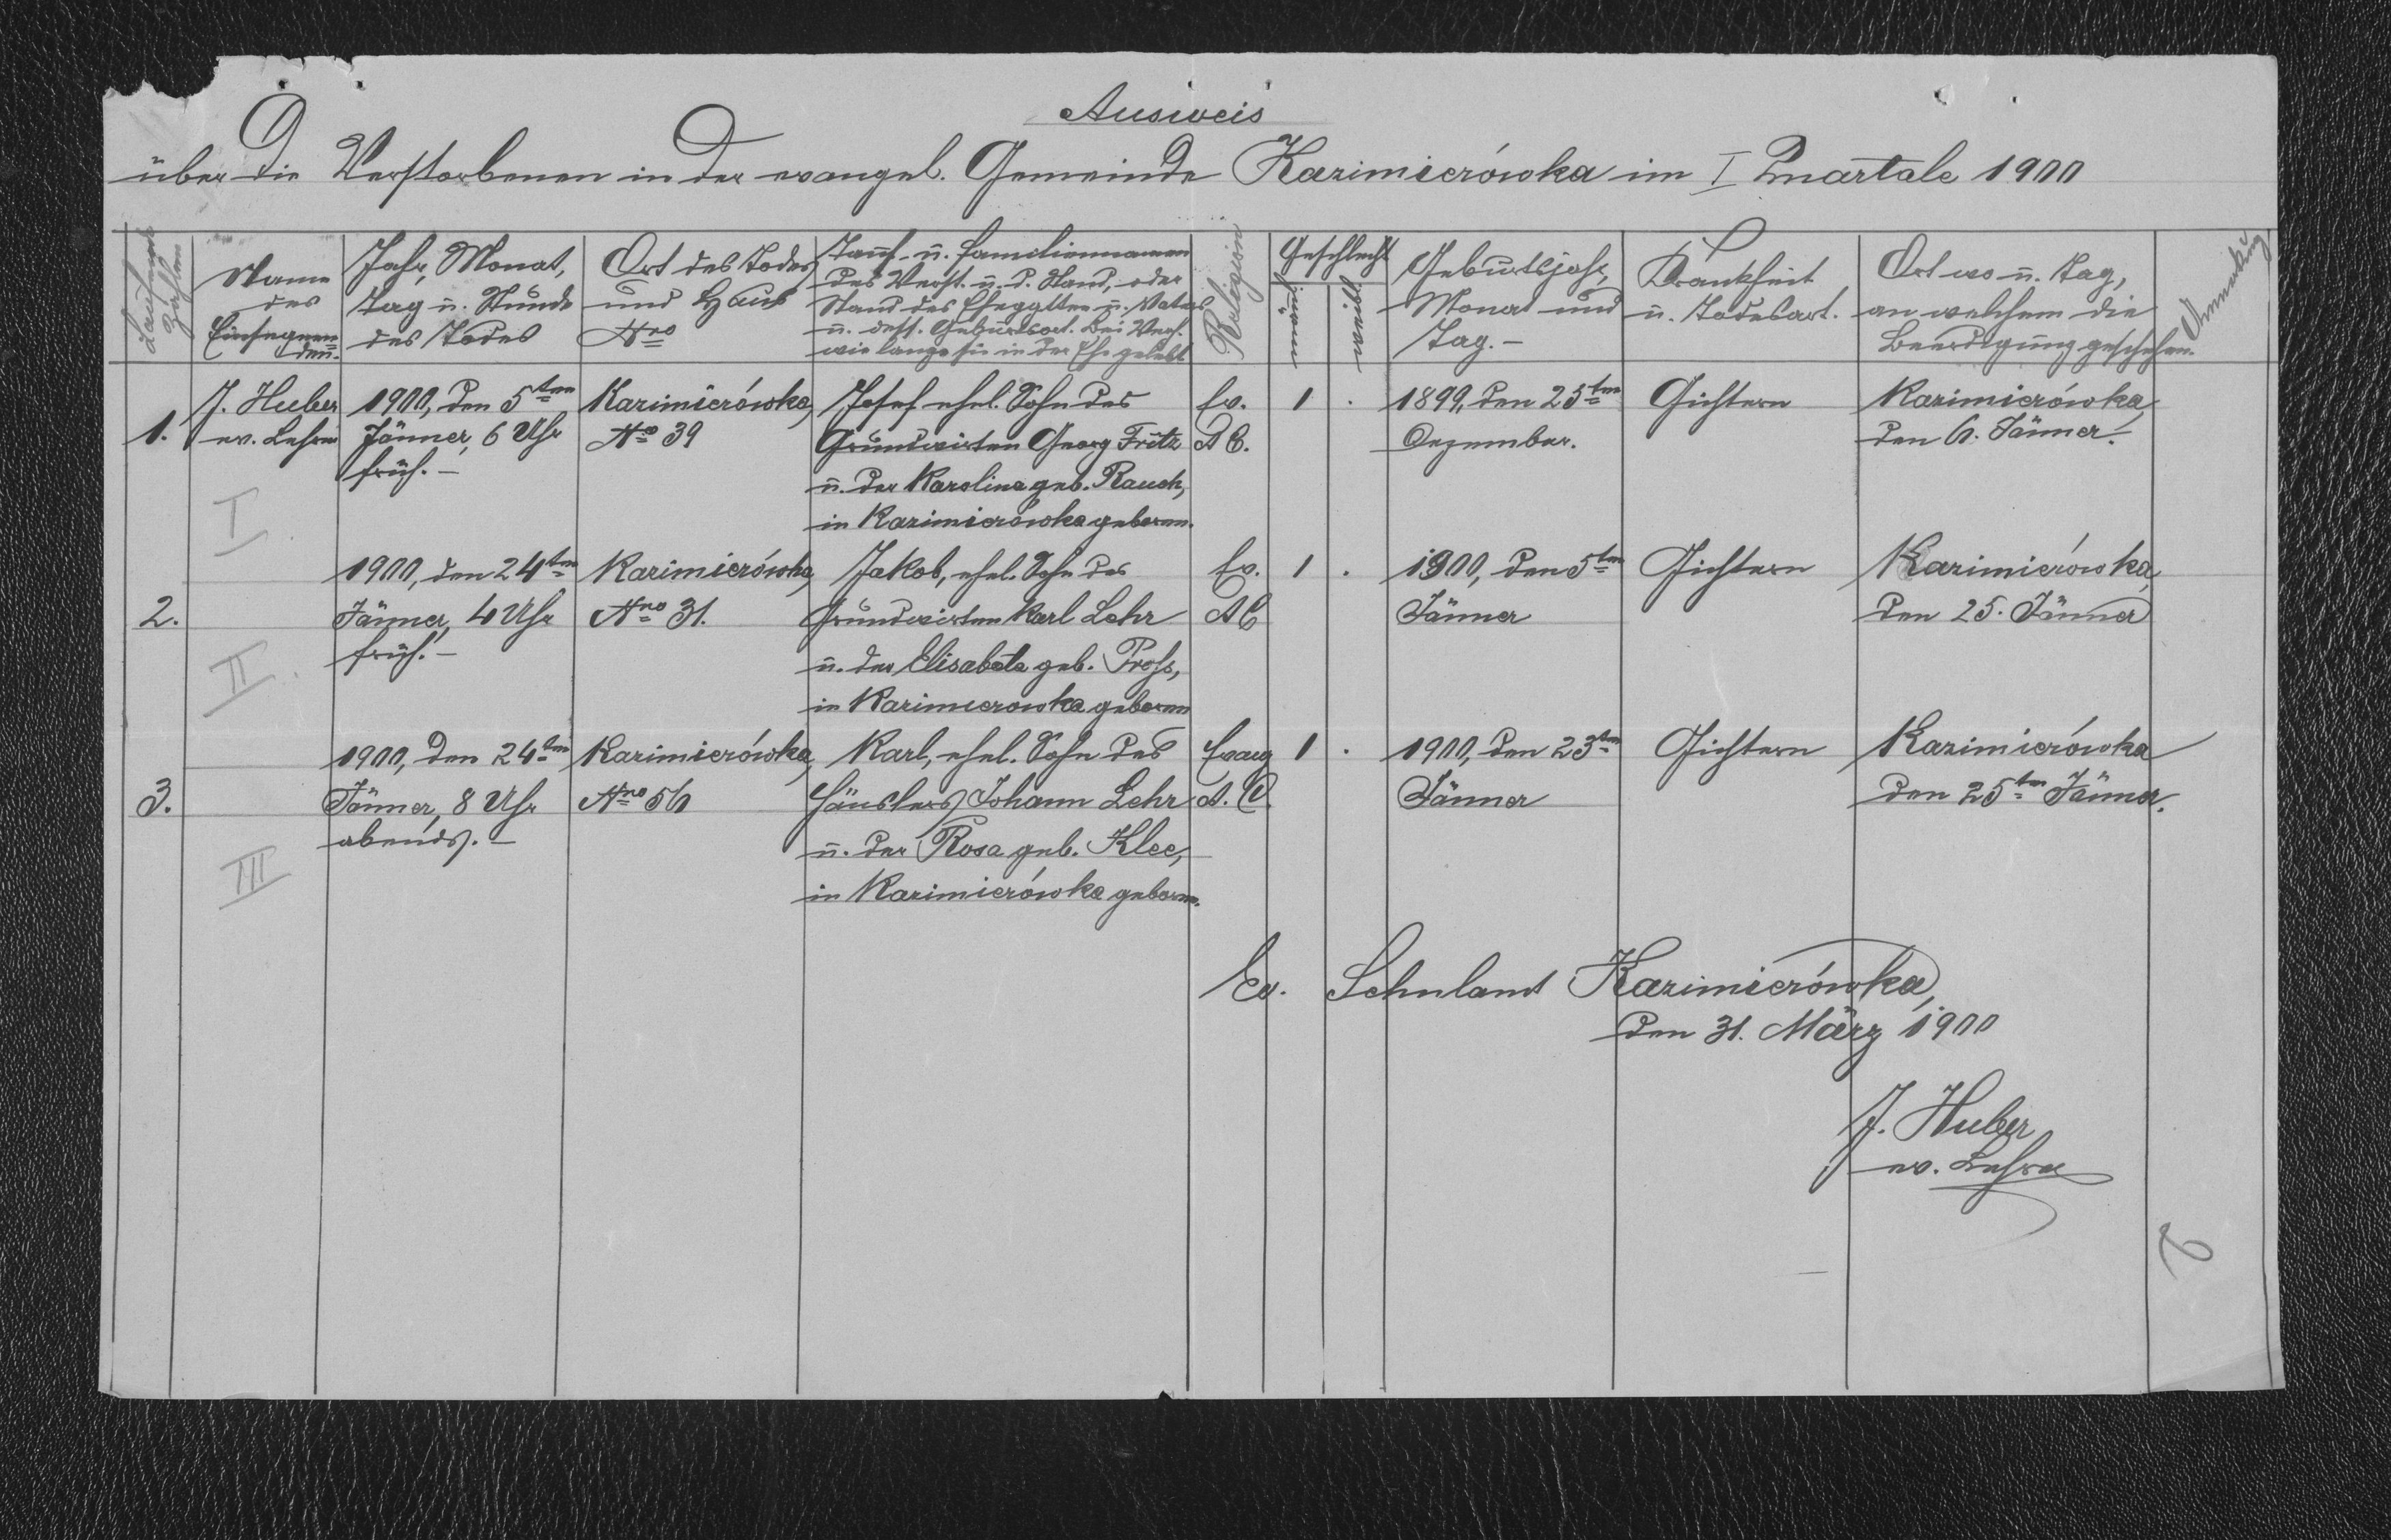 Ausweis
über die Verstorbenen in der evangel. Gemeinde Kazimierówka im I Quartale 1900
Laufende Zahlen
Name
des
Einsegnen=
den.
Jahr, Monat,
Tag u. Stunde
des Todes
Ort des Todes
und Haus
Nro
Tauf- u. Familiennamen
des Verst. u. d. Stand, oder
Stand des Ehegatten u. Vaters
u. dess. Geburtsort. Bei Verh.
wie lange sie in der Ehe gelebt
Religion
Geschlecht
männl.
weibl.
Geburtsjahr,
Monat und
Tag. –
Krankheit
u. Todesart.
Ort wo u. Tag,
an welchem die
Beerdigung geschehen.
Anmerkung
1.
J. Huber
ev. Lehrer
1900, den 5ten
Jänner, 6 Uhr
früh. –
Kazimierówka,
Nro 39
Josef ehel. Sohn des
Grundwirten Georg Fritz
u. der Karolina geb. Rauch,
in Kazimierówka geboren.
Ev.
A C.
1 .
1899, den 25ten
Dezember.
Gichtern
Kazimierówka,
den 6. Jänner.
I
2.
1900, den 24ten
Jänner, 4 Uhr
früh. –
Kazimierówka,
Nro 31.
Jakob, ehel. Sohn des
Grundwirten Karl Lehr
u. der Elisabeta geb. Pross,
in Kazimierowka geboren
Ev.
A C
1 .
1900, den 5ten
Jänner
Gichtern
Kazimierówka,
den 25. Jänner
II.
3.
1900, den 24ten
Jänner, 8 Uhr
abends. –
Kazimierówka,
Nro 56
Karl, ehel. Sohn des
Häuslers Johann Lehr
u. der Rosa geb. Klee,
in Kazimierówka geboren.
Evang
A. C.
1 .
1900, den 23ten
Jänner
Gichtern
Kazimierówka
den 25ten Jänner.
III
Ev. Schulamt Kazimierówka,
den 31. März 1900
J. Huber
ev. Lehrer